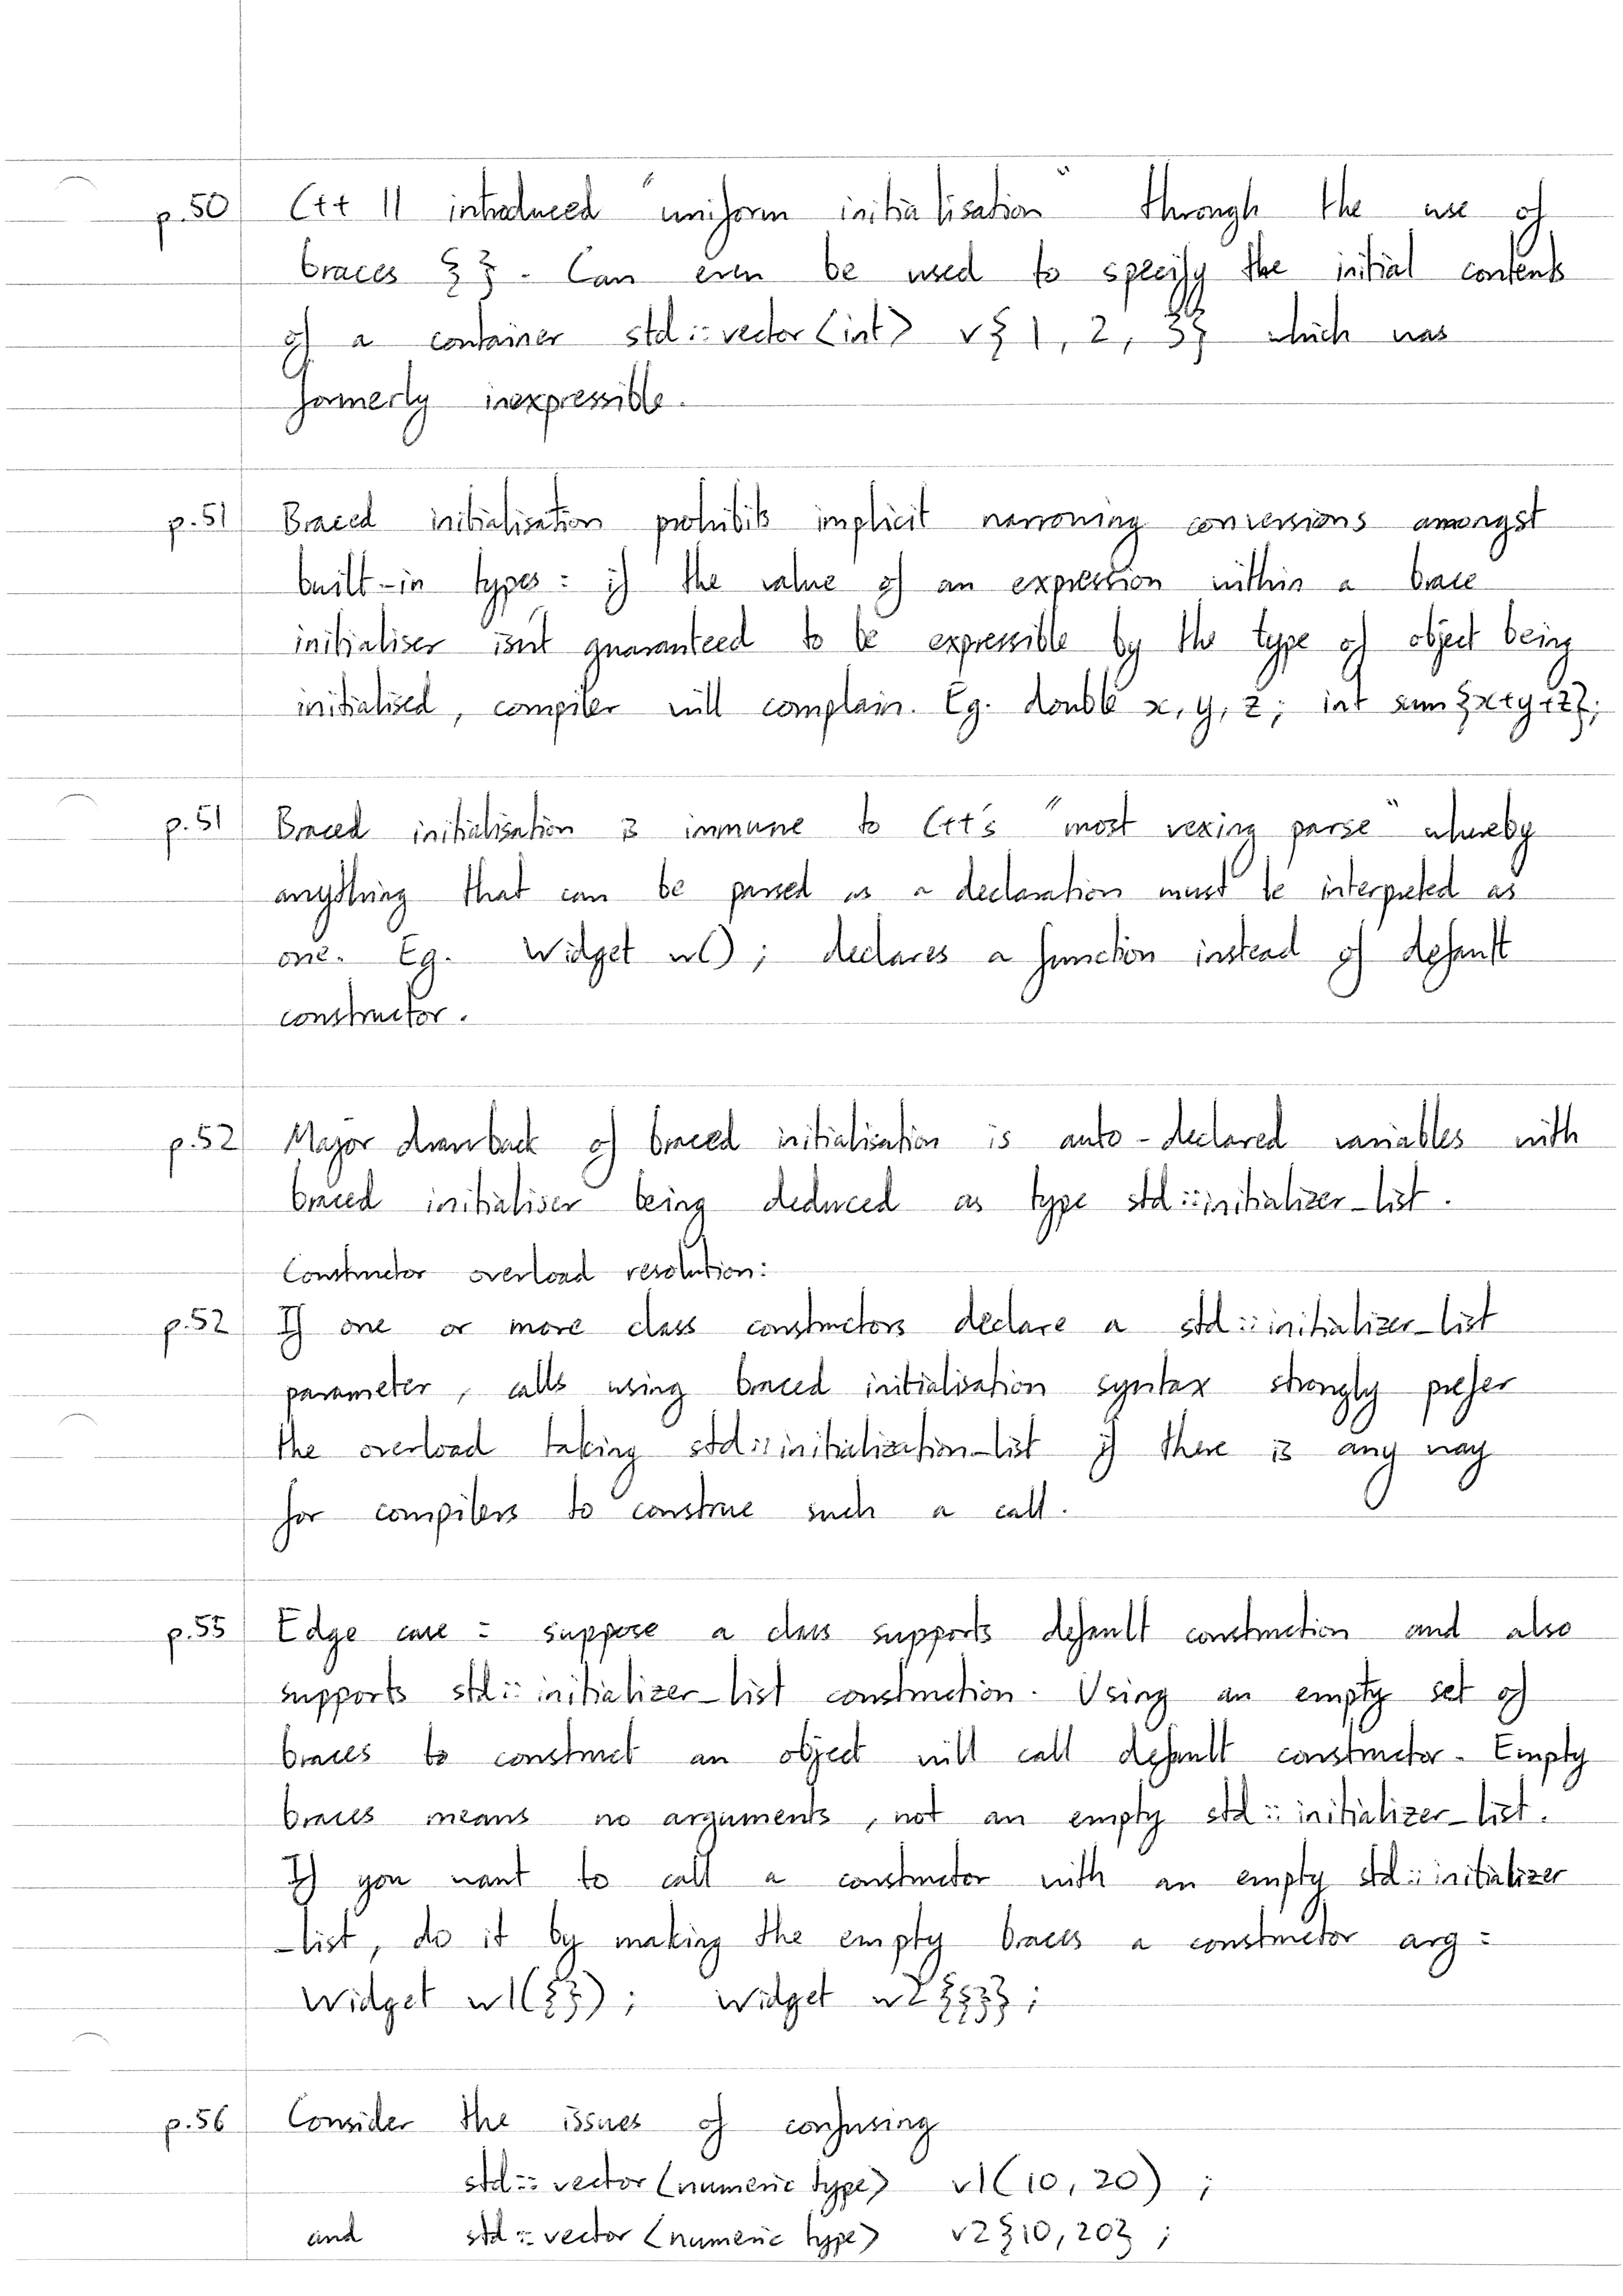 p.50 C++ 11 introduced "uniform initialisation" through the use of
braces {}. Can even be used to specify the initial contents
of a container std::vector<int> v{1, 2, 3} which was
formerly inexpressible.
p.51 Braced initialisation prohibits implicit narrowing conversions amongst
built-in types: if the value of an expression within a brace
initialiser isn't guaranteed to be expressible by the type of object being
initialised, compiler will complain. Eg. double x, y, z; int sum{x+y+z};
p.51 Braced initialisation is immune to C++'s "most vexing parse" whereby
anything that can be parsed as a declaration must be interpreted as
one. Eg. Widget w(); declares a function instead of default
constructor.
p.52 Major drawback of braced initialisation is auto-declared variables with
braced initialiser being deduced as type std::initializer_list.
Constructor overload resolution:
p.52 If one or more class constructors declare a std::initializer_list
parameter, calls using braced initialisation syntax strongly prefer
the overload taking std::initialization_list if there is any way
for compilers to construe such a call.
p.55 Edge case: suppose a class supports default construction and also
supports std::initializer_list construction. Using an empty set of
braces to construct an object will call default constructor. Empty
braces means no arguments, not an empty std::initializer_list.
If you want to call a constructor with an empty std::initializer
_list, do it by making the empty braces a constructor arg:
Widget w1({}); Widget w2{{}};
p.56 Consider the issues of confusing
std::vector<numeric type> v1(10, 20);
and std::vector<numeric type> v2{10, 20};